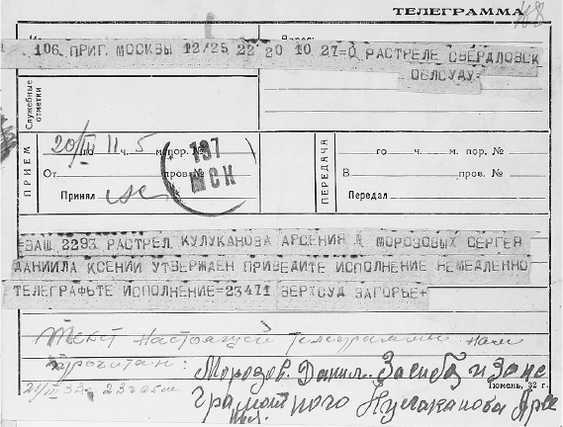 ТЕЛЕГРАММА
106 ПРИГ МОСКВЫ 12/25 22 20 10 27= О РАСТРЕЛЕ СВЕРДЛОВСК
ОБЛСУДУ=
Служебные отметки
ПРИЕМ
20/III 11 ч. 5 м. пор. №
От пров. №
Принял
197
МСК
ПЕРЕДАЧА
го ч. м. пор. №
В пров. №
Передал
=ВАШ 2293 РАСТРЕЛ КУЛУКАНОВА АРСЕНИЯ МОРОЗОВЫХ СЕРГЕЯ
ДАНИИЛА КСЕНИИ УТВЕРЖДЕН ПРИВЕДИТЕ ИСПОЛНЕНИЕ НЕМЕДЛЕННО
ТЕЛЕГРАФЬТЕ ИСПОЛНЕНИЕ=23471 ВЕРХСУД ЗАГОРЬЕ+
Текст настоящей телеграммы нам
прочитан: Морозов Данил. За себя и за не
Тюмень, 32 г.
грамотного Кулаканова Арсе